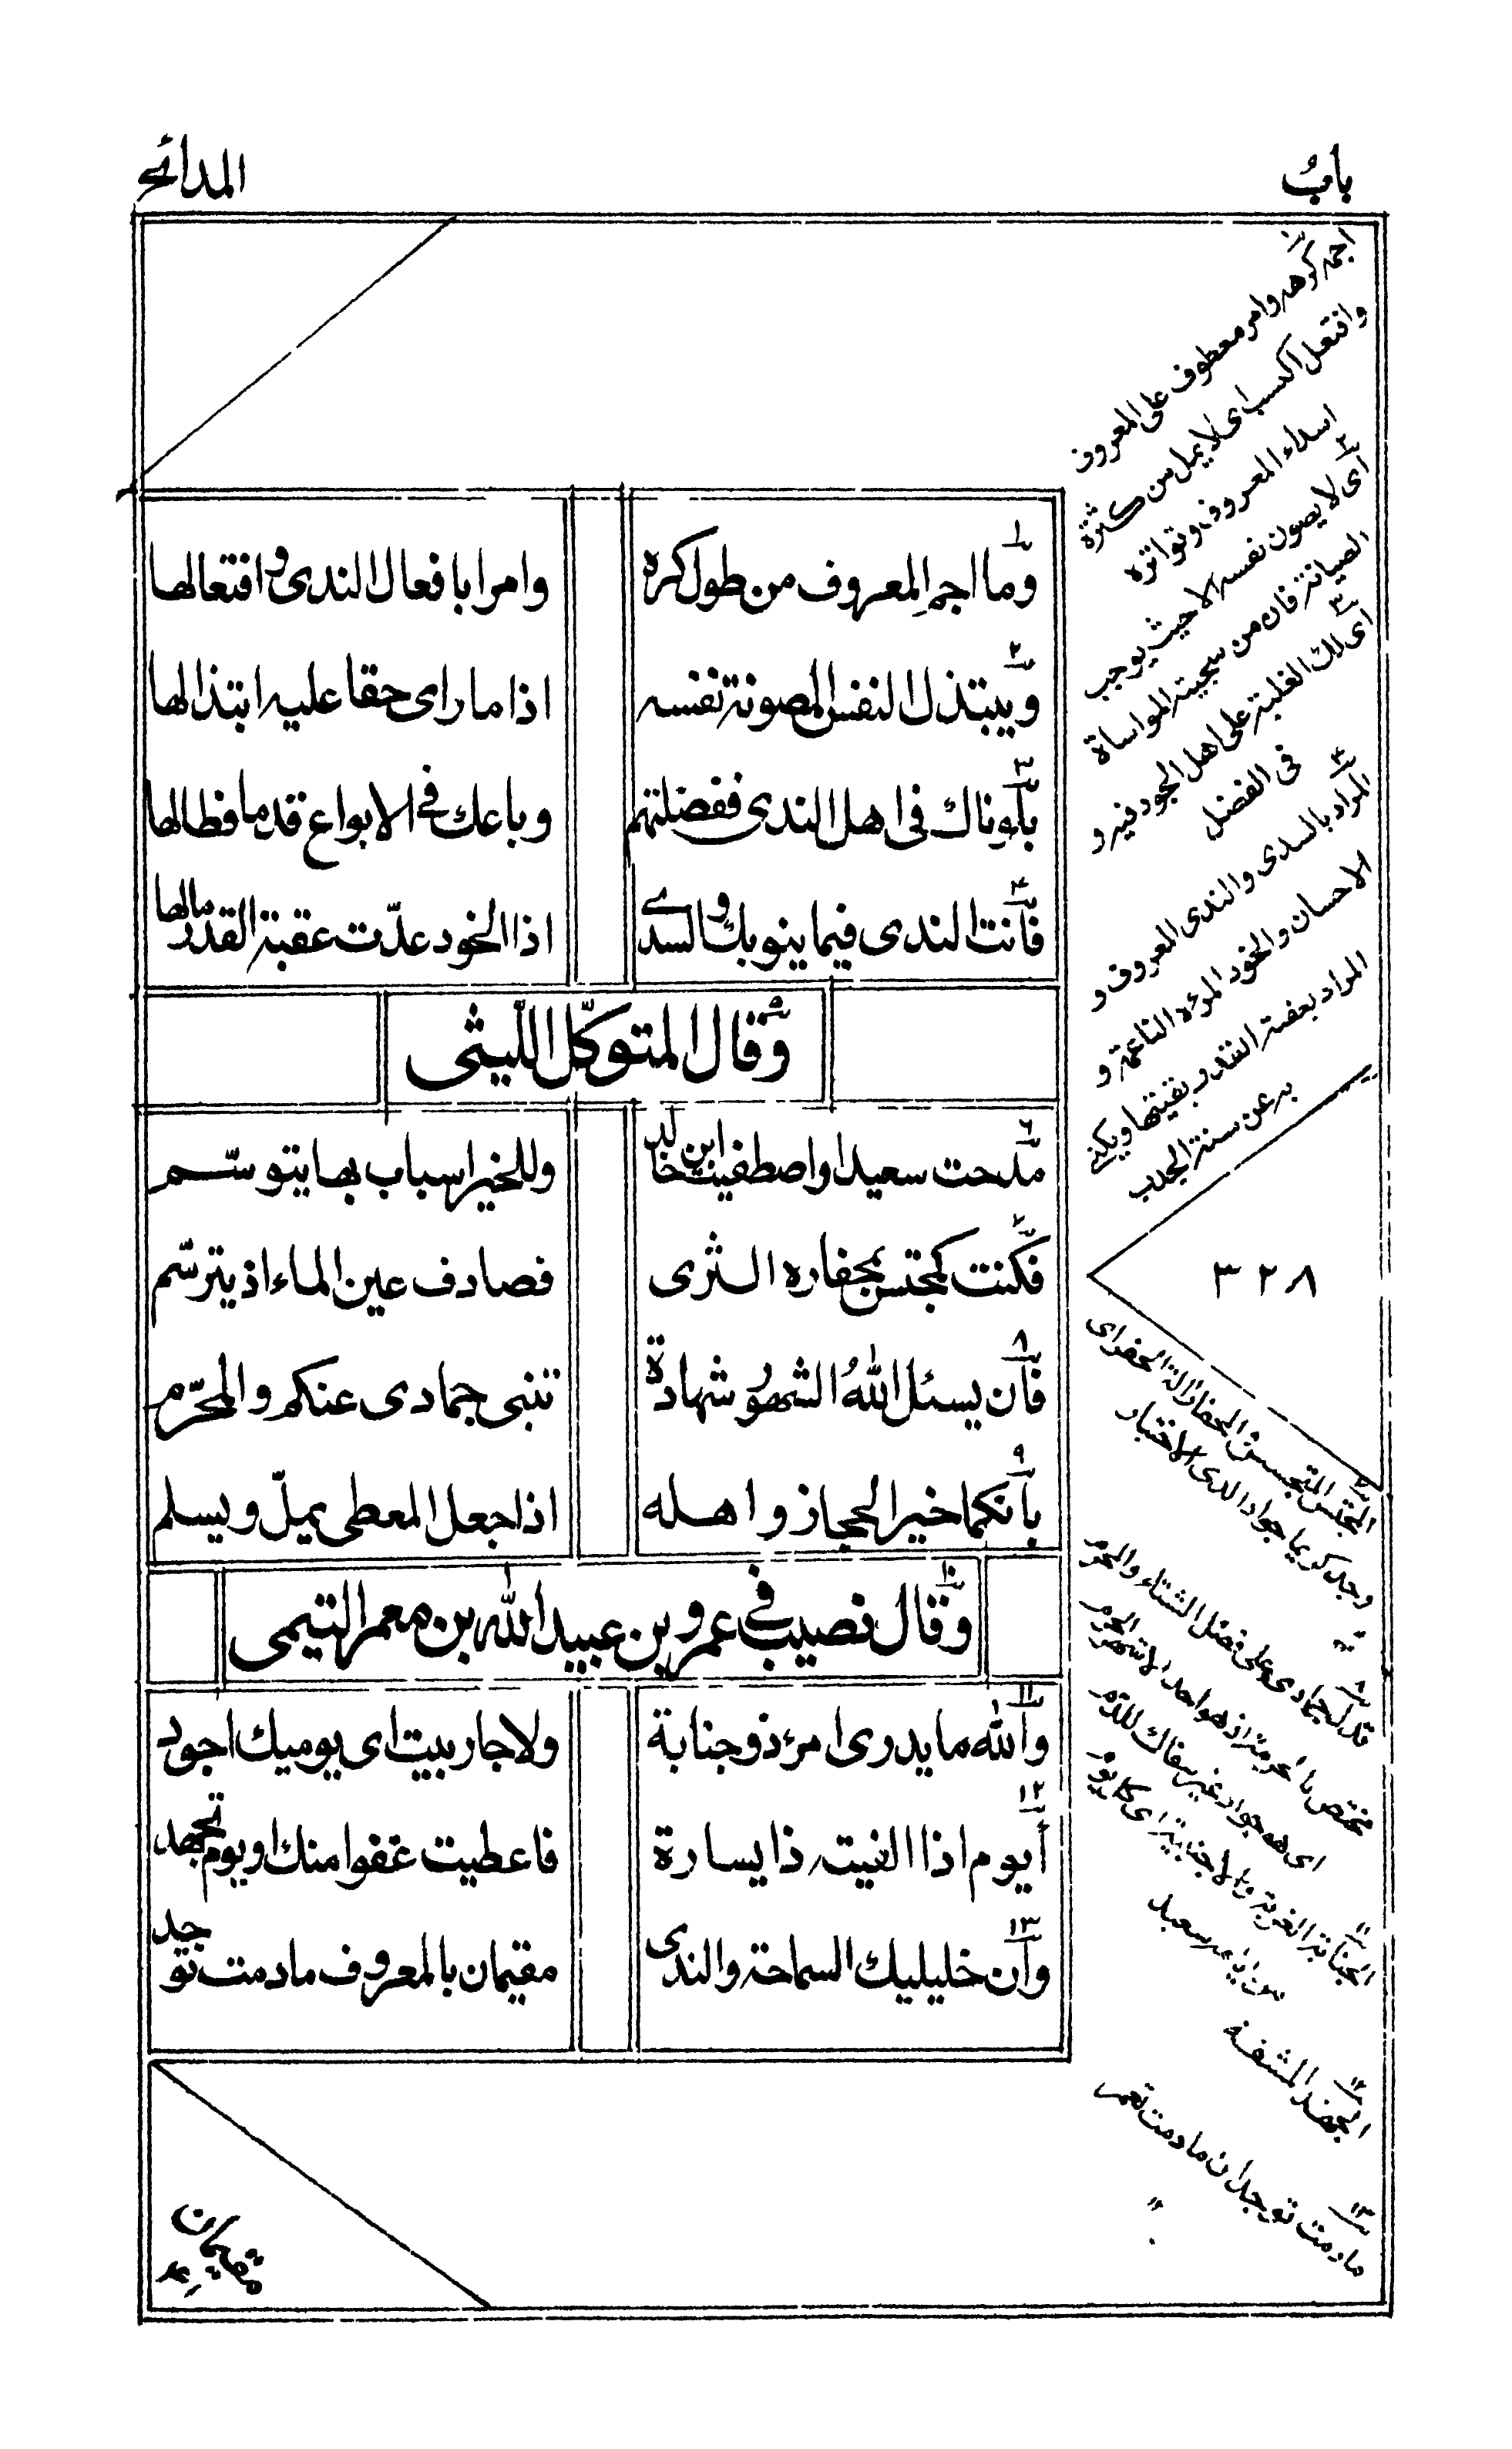 بابُ
المدائح
١ وما اجم المعروف من طول كره
وامرا بافعال الندى وافتعالها
٢ ويبتذل النفس المصونة نفسه
اذا ما راى حقا عليه ابتذالها
٣ بلوناك فى اهل الندى ففضلتهم
وباعك فى الابواع قدما فطالها
٤ فانت الندى فيما ينوبك والسدى
اذا الخود عدّت عقبة القدر مالها
٥ وقال المتوكّل اللّيثى
٦ مدحت سعيدا واصطفيت ابن خالد
وللخير اسباب بها يتوسّم
٧ فكنت كمجتس بمحفاره الثرى
فصادف عين الماء اذ يترسّم
٨ فان يسئل اللهُ الشهورُ شهادة
تنبى جمادى عنكم والمحرّم
٩ بانكما خير الحجاز واهله
اذا جعل المعطى يملّ ويسلم
١٠ وقال نصيب فى عمرو بن عبيد الله بن معمر التيمى
١١ والله ما يدرى امرئ ذو جنابة
ولا جار بيت اى يوميك اجود
١٢ أيوم اذا الفيته ذا يسارة
فاعطيت عفوا منك او يوم تجهد
١٣ وان خليليك السماحة والندى
مقيمان بالمعروف ما دمت توجد
١ اجمه كرهه وامر معطوف على المعروف
وافتعل اكتسب اى لا يمل من كثرة
اسداء المعروف وتواتره
٢ اى لا يصون نفسه الا حيث يوجب
الصيانة فان من سجيته المواساة
٣ اى لك الغلبة على اهل الجود فيه و
فى الفضل
٤ المراد بالسدى والندى المعروف و
الاحسان والخود المرءة الناعمة و
المراد بعقبة القدر بقيتها ويكنى
به عن سنة الجدب
٣٢٨
٧ المجتس المتجسس والمحفار الة الحفر اى
وجد كريما جوادا لدى الاختبار
٨ قد لجمادى على فصل الشتاء والمحرم
مختص بالحرمة اذ هو احد الاشهر الحرم
اى هو جواد غير سفاك للدم
١١ الجنابة الغربة والاجنابية اى
١٢ الجهد المشقة
١٣ ما دمت توجد اى ما دمت تعمر
مقيمان